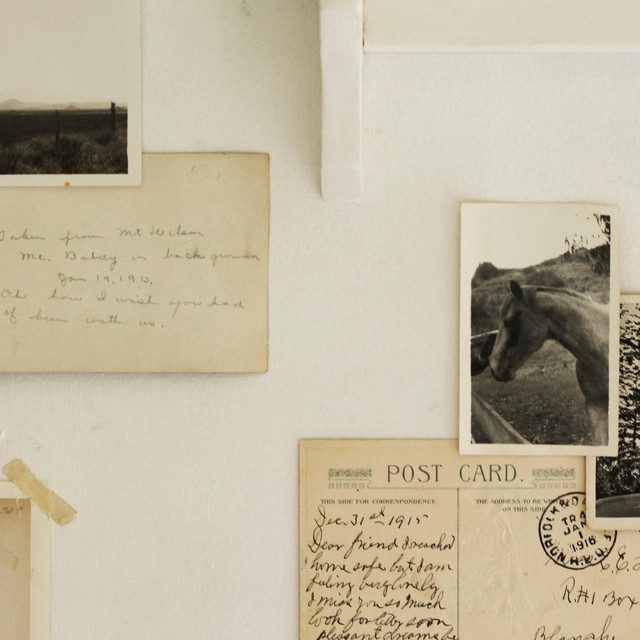 Taken from Mt Wilson
Mt. Baldy in back ground
Jan 19, 1913.
Oh how I wish you had
of been with us.
POST CARD.
THIS SIDE FOR CORRESPONDENCE.
THE ADDRESS TO BE
ON THIS SIDE
Dec. 31st 1915
Dear friend I reached
home safe but I am
feling very lonely
I miss you so much
look for Billy soon
pleasant dreams
NORFOLK &
TRA
JAN
1
1916
R.P.O.
R.H.1 Box